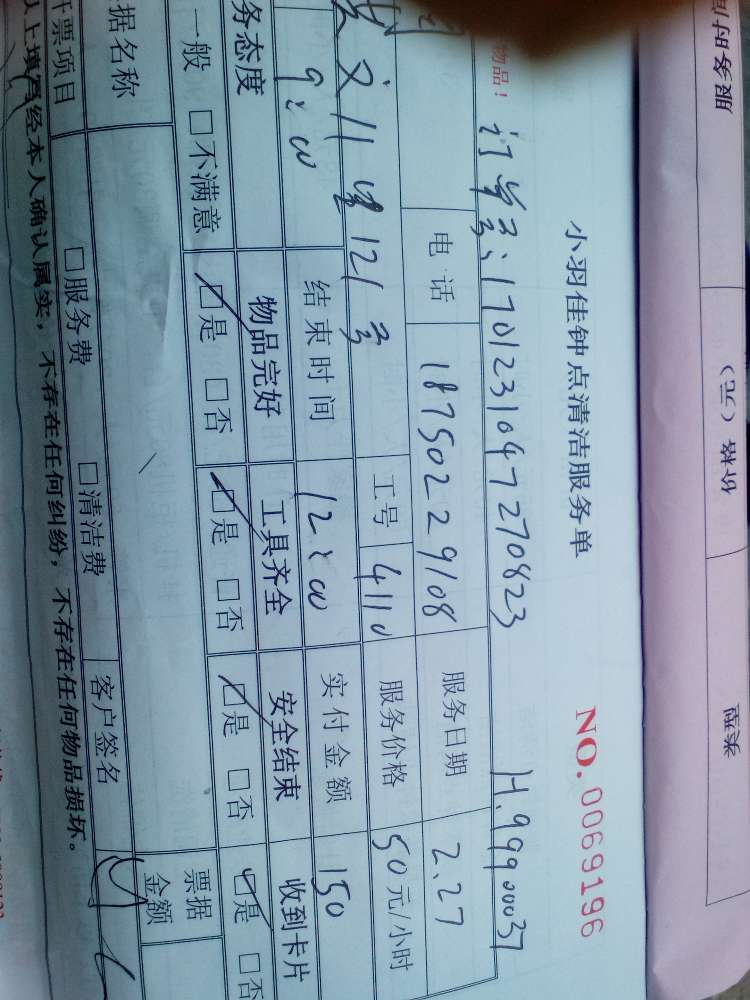 服务时间 价格（元） 来源
小羽佳钟点清洁服务单 NO. 0069196
物品！ 订单号：1701231047270823 H.99900037
电话 18750229108 服务日期 2.27
11 121号 工号 4110 服务价格 50元/小时
9:00 结束时间 12:00 实付金额 150
务态度 物品完好 工具齐全 安全结束 收到卡片
一般 □不满意 □是 □否 □是 □否 □是 □否 □是 □否
据名称 票据金额
开票项目 □服务费 □清洁费 客户签名
以上填写经本人确认属实，不存在任何纠纷，不存在任何物品损坏。